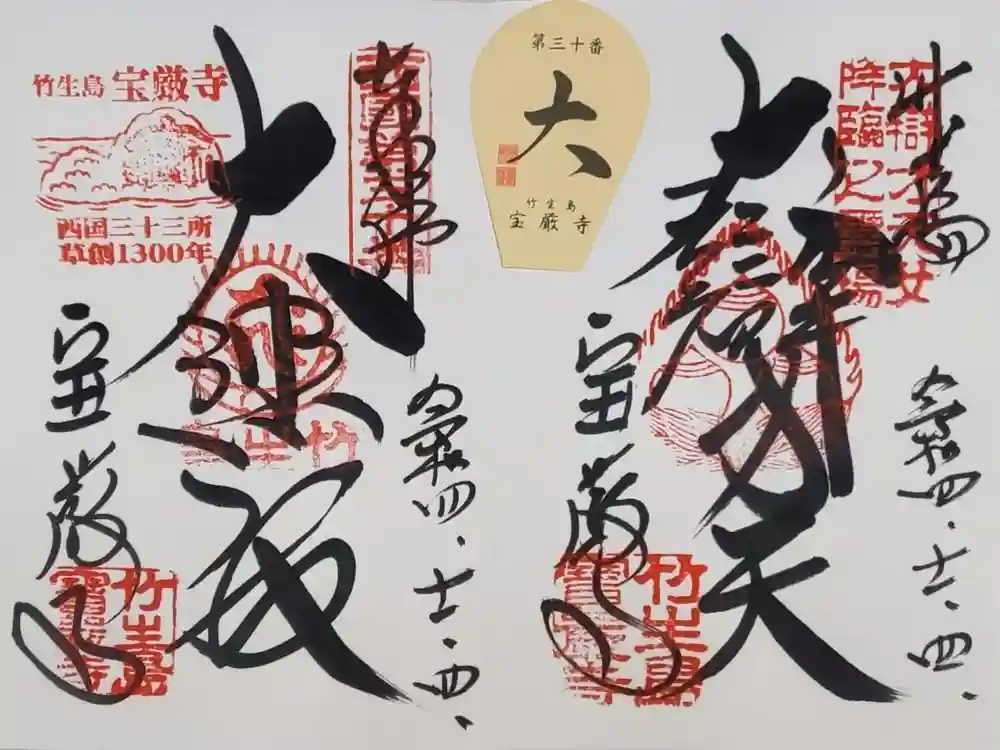 奉拝
大弁才天
令和四、十一、四、
宝厳寺
大辯才天女
降臨之靈場
竹生島
寶厳寺
第三十番
大
竹生島
宝厳寺
奉拝
大悲殿
令和四、十一、四、
宝厳寺
竹生島 宝厳寺
西国三十三所
草創1300年
竹生
竹生島
寶厳寺